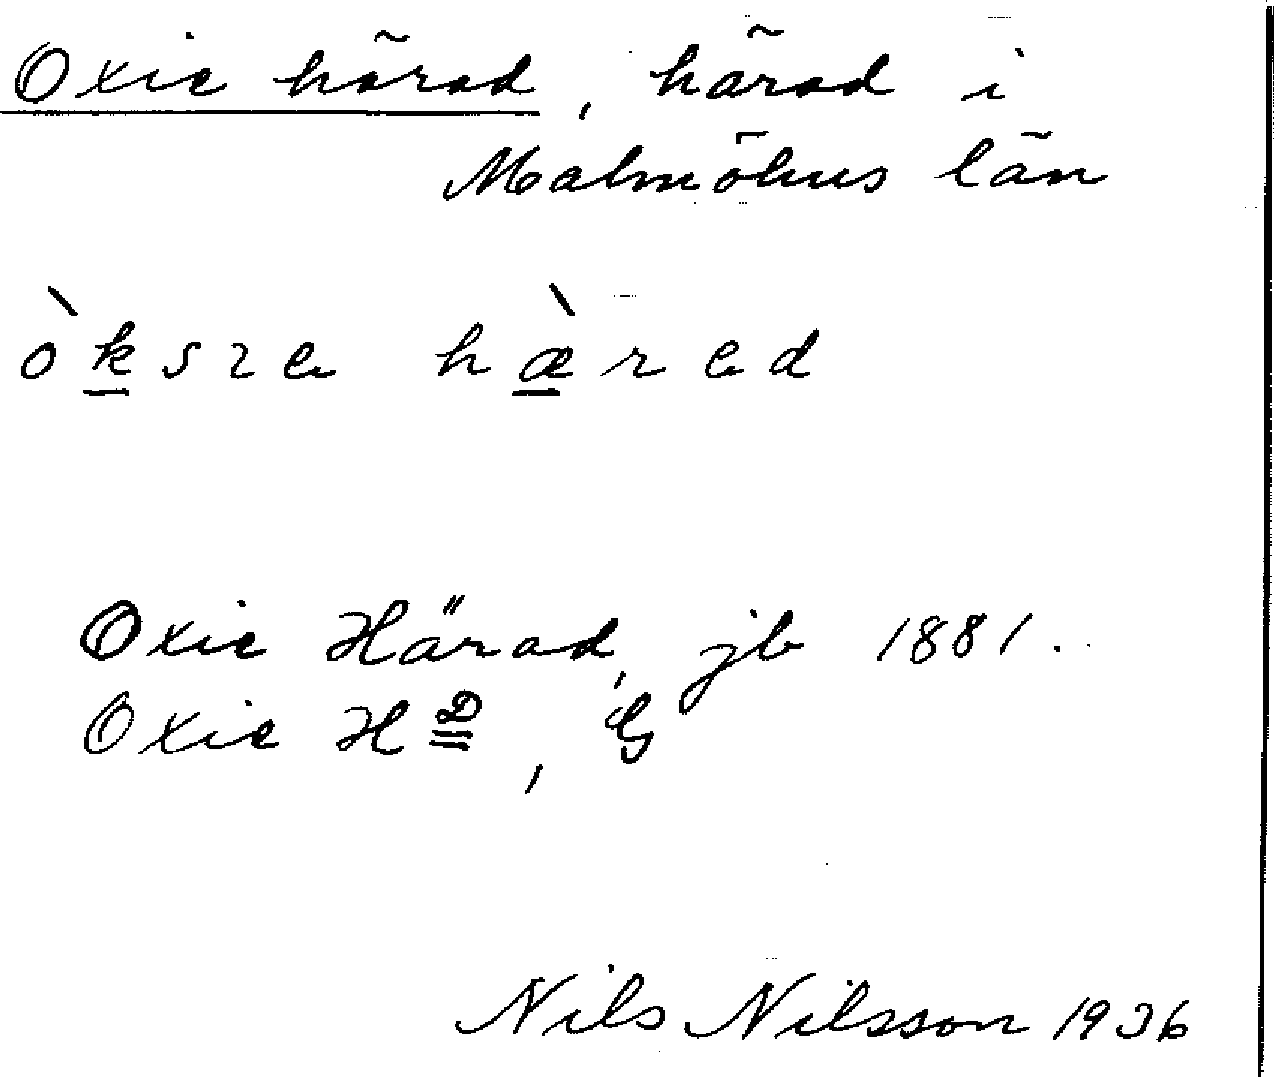 Oxie härad, härad i
Malmöhus län
òksɿa hæ̀rad
Oxie Härad, jb 1881.
Oxie HD, G
Nils Nilsson 1936